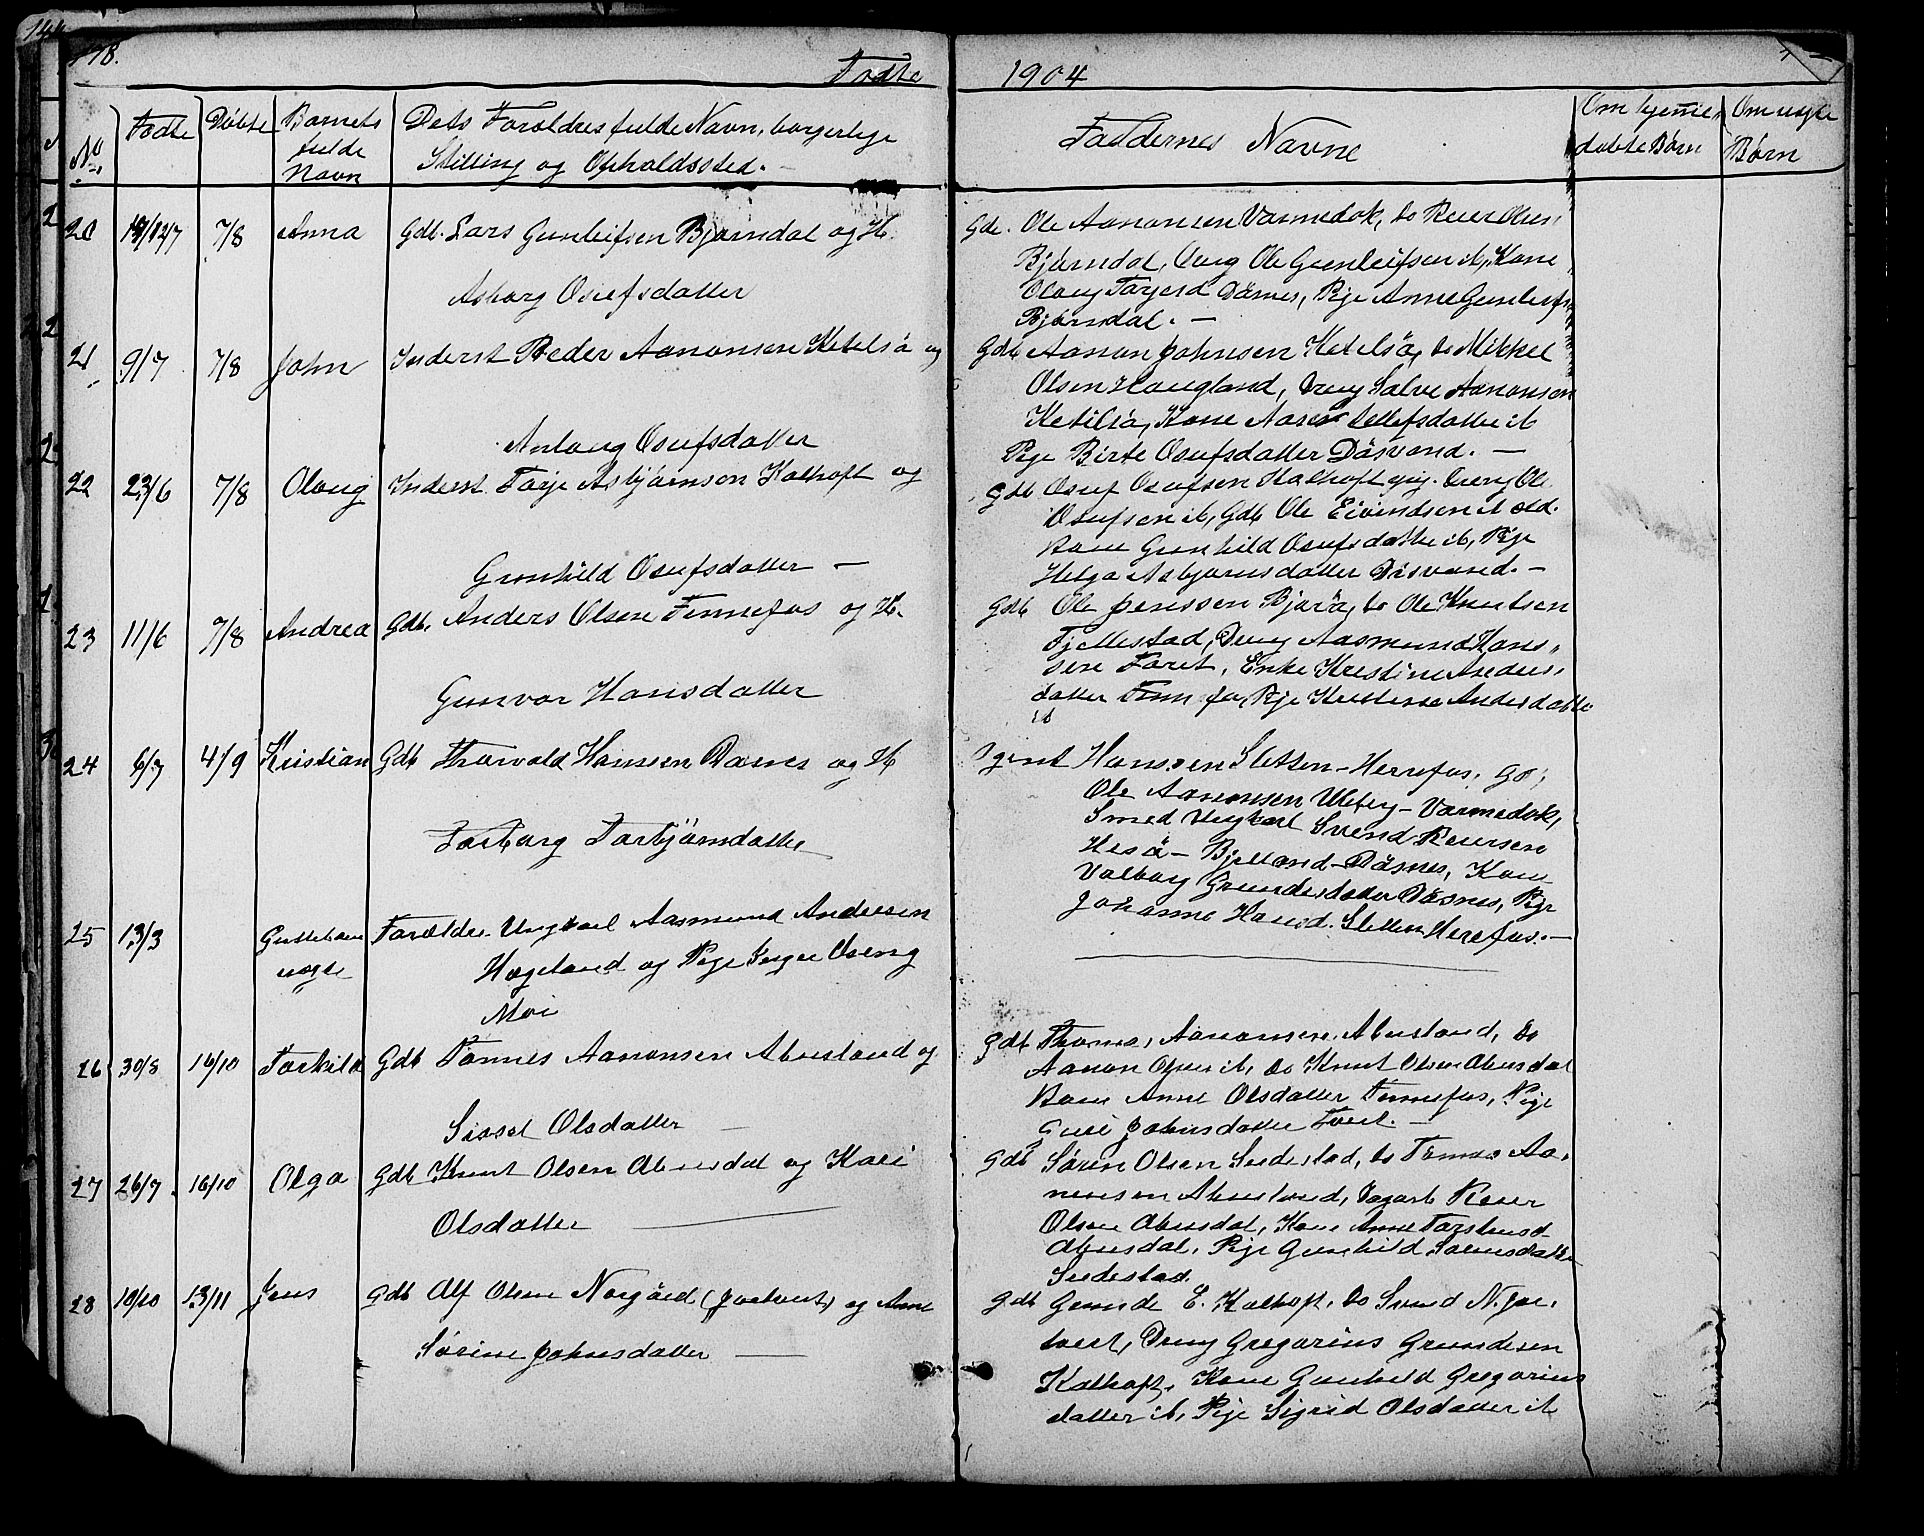 118.
Fødte 1904
No
Fødte
Døbte
Barnets
fulde
Navn
Dets Forældres fulde Navn, borgerlige
Stilling og Opholdssted.
Faddernes Navne
Om hjemme
døbte Børn
Om uægte
Børn
20 7/8 Anna Gdb. Lars Gunleifsen Bjørndal og H.
Asborg Osufsdatter
Gdb. Ole Aanonsen Varmedok, do Reier Olsen
Bjørndal, Ung Ole Gunleifsen ib, Kone
Olaug Tarjersd Dåsnes, Pige Anne Gunleifs
Bjørndal. —
21 9/7 7/8 John Inderst Peder Aanonsen Ketelså og
Anlaug Osufsdatter
Gdb Aanon Johnsen Ketelså, do Mikkel
Olsen Haugland, Dreng Salve Aanonsen
Ketilså, Kone Aase Tellefsdatter ib
Pige Birte Osufsdatter Dåsvand. —
22 23/6 7/8 Olaug Inderst. Tarje Asbjørnsen Kalhoft og
Gunhild Osufsdatter —
Gdb Osuf Osufsen Kalhoft yng. Dreng Ole
Osufsen ib, Gdb Ole Eivindsen ib æld.
Kone Gunhild Osufsdatter ib, Pige
Helga Asbjørnsdatter Dåsvand. —
23 11/6 7/8 Andrea Gdb. Anders Olsen Fennefos og H.
Gunvor Hansdatter
Gdb Ole Jenssen Bjorå, do Ole Knutsen
Fjellestad, Dreng Aasmund Hans-
sen Foret, Enke Kristine Anders-
datter Fennefos, Pige Andersdatter
ib
24 6/7 4/9 Kristian Gdb Thorvald Hanssen Dåsnes og H
Torborg Torbjørnsdatter
Hanssen Sletten-Herrefos, Gd;
Ole Aanonsen Ubery-Varmedok,
Smed Ungkarl Svend Reiersen
Heså- Bjelland-Dåsnes, Kone
Valborg Grundesdatter Dåsnes, Pige
Johanne Hansd. Sletten Herefos. —
25 13/3 Guttebarn Forældre. Ungkarl Aasmund Andersen
uægte Hægeland og Pige Inger Oseng
Moi
26 30/8 16/10 Torkild Gdb Tomas Aanonsen Abusland og
Sissel Olsdatter —
Gdb Thomas Aanonsen Abusland, do
Aanon Olsen ib, do Knut Olsen Abusdal
Kone Anne Olsdatter Fennefos, Pige
Guri Johnsdatter Tveit. —
27 26/7 16/10 Olga Gdb Knut Olsen Abusdal og Kari
Olsdatter —
Gdb Søren Olsen Sudestad, do Tomas Aa-
nensen Abusland, Vogart Reier
Olsen Abusdal, Kone Anne Torstensd
Abusdal, Pige Gunhild Sørensdatter
Sudestad.
28 10/10 13/11 Jens Gdb Alf Olsen Norgård (Jortveit) og Anne
Sørine Johnsdatter —
Gdb Gunde E. Kalhoft, do Svend N. Jor-
tveit, Dreng Gregorius Grundesen
Kalhoft, Kone Gunhild Gregorius
datter ib, Pige Sigrid Olsdatter ib